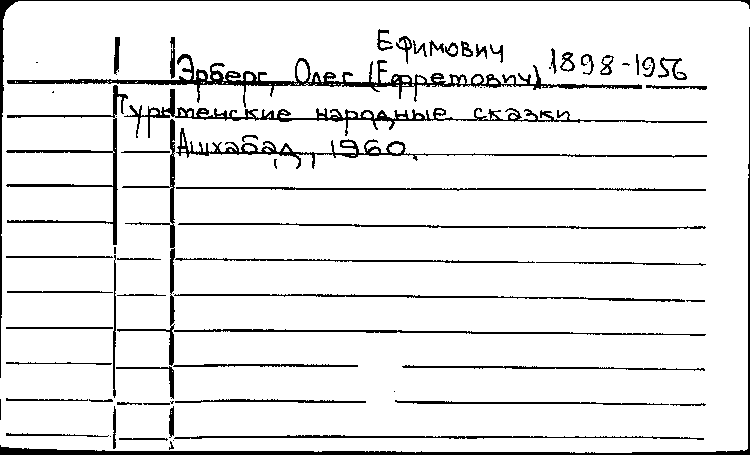 Ефимович
Эрберг, Олег (Ефремович) 1898-1956
Туркменские народные сказки.
Ашхабад, 1960.